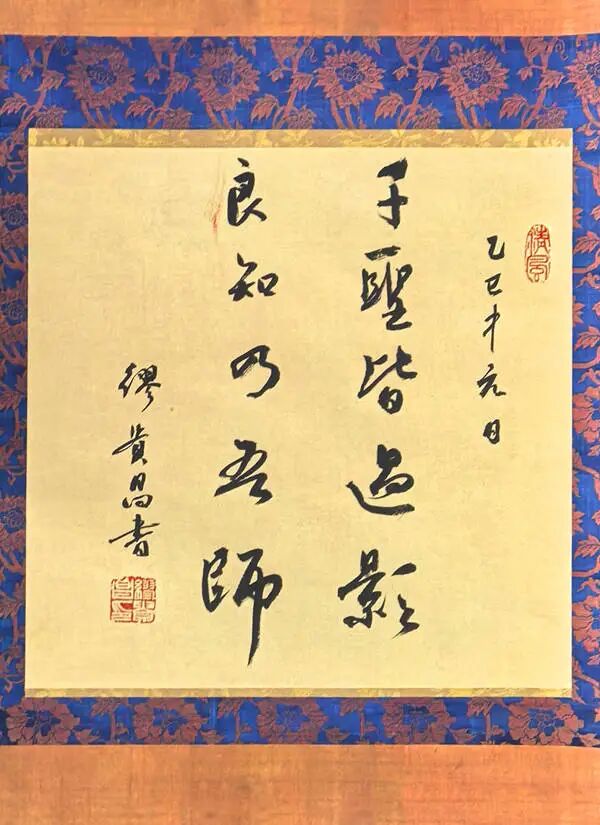 乙巳年元日
千聖皆過影
良知乃吾師
繆貴昌書